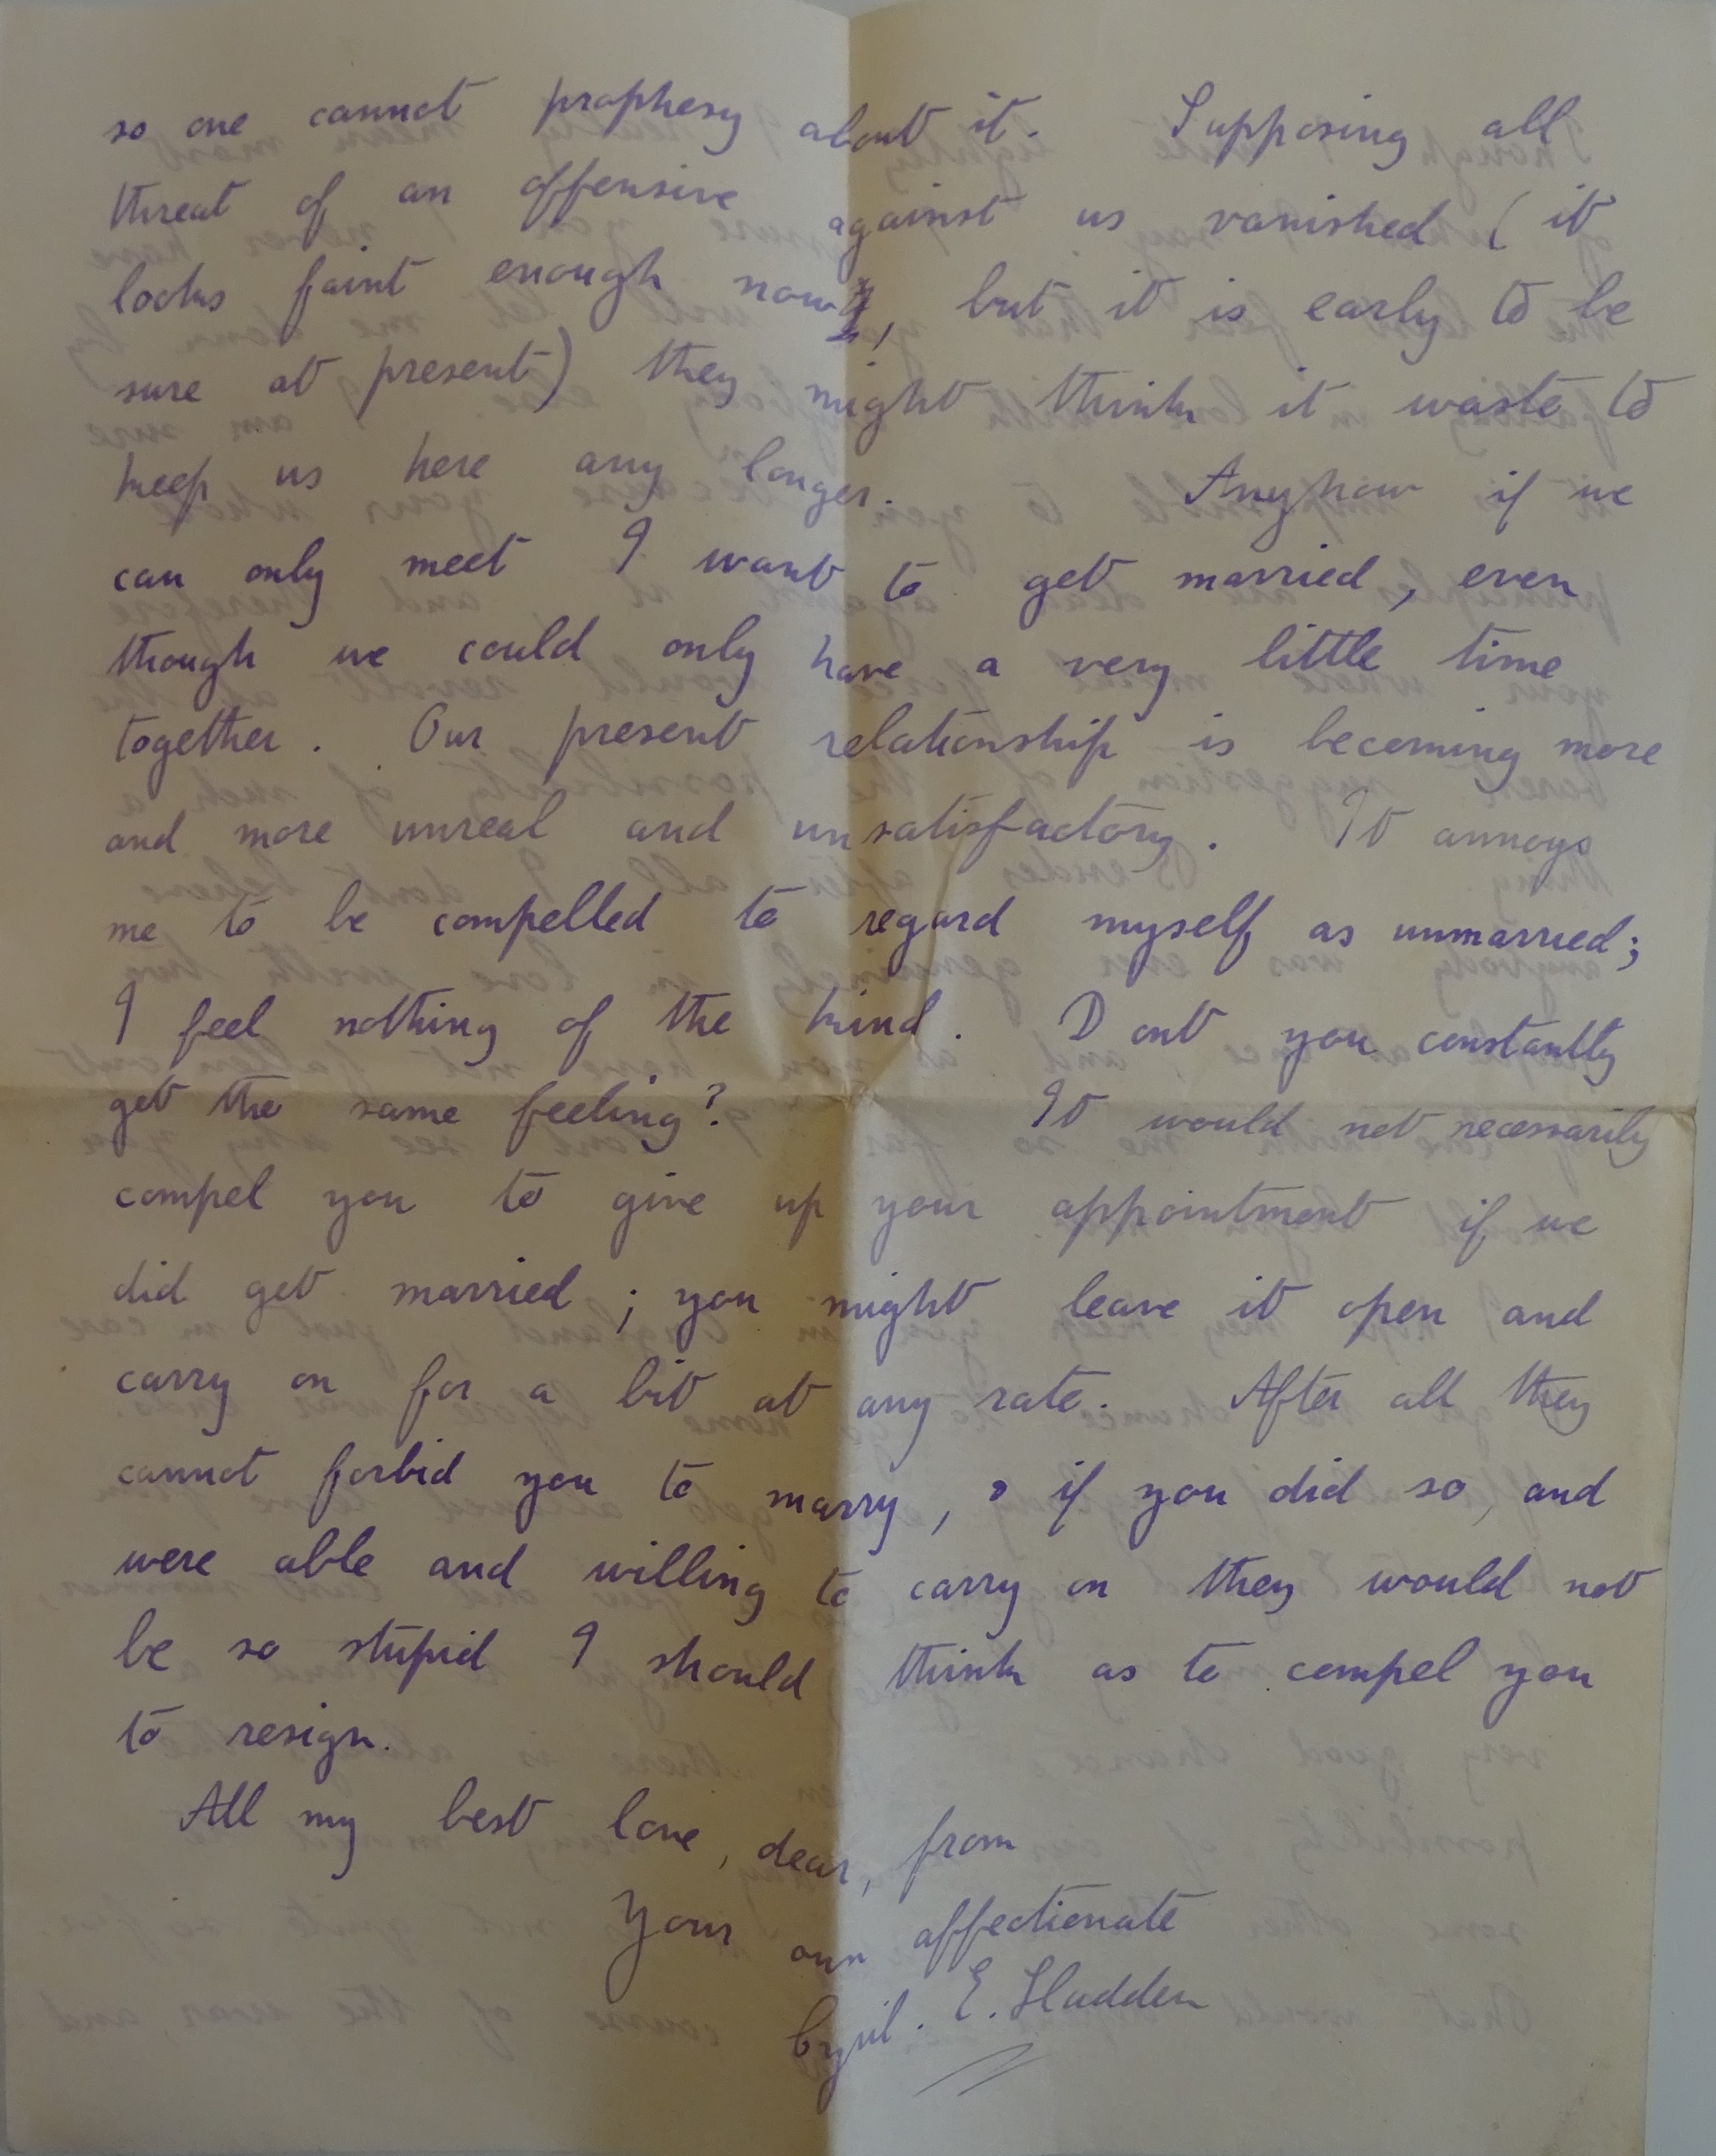 so one cannot prophesy about it. Supposing all
threat of an offensive against us vanished (it
looks faint enough now, but it is early to be
sure at present) they might think it waste to
keep us here any longer. Anyhow if we
can only meet I want to get married, even
though we could only have a very little time
together. Our present relationship is becoming more
and more unreal and unsatisfactory. It annoys
me to be compelled to regard myself as unmarried;
I feel nothing of the kind. Dont you constantly
get the same feeling? It would not necessarily
compel you to give up your appointment if we
did get married; you might leave it open and
carry on for a bit at any rate. After all they
cannot forbid you to marry, & if you did so, and
were able and willing to carry on they would not
be so stupid I should think as to compel you
to resign.
All my best love, dear, from
Your own affectionate
Cyril. E. Sladden